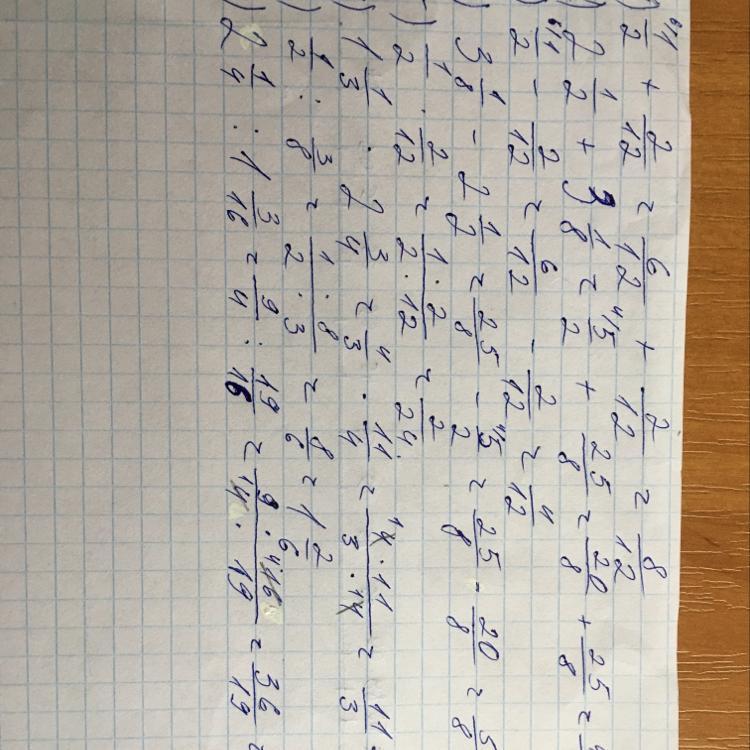 ) ⁶⁾1/2 + 2/12 = 6/12 + 2/12 = 8/12
) 2 1/2 + 3 1/8 = ⁴⁾5/2 + 25/8 = 20/8 + 25/8 =
) ⁶⁾1/2 - 2/12 = 6/12 - 2/12 = 4/12
3 1/8 - 2 1/2 = 25/8 - ⁴⁾5/2 = 25/8 - 20/8 = 5/8
) 1/2 · 2/12 = 1·2/2·12 = 2/24.
) 1 1/3 · 2 3/4 = 4/3 · 11/4 = ¹4·11/3·¹4 = 11/3
) 1/2 : 3/8 = 1·8/2·3 = 8/6 = 1 2/6
) 2 1/4 : 1 3/16 = 9/4 : 19/16 = 9·⁴16/¹4·19 = 36/19 =